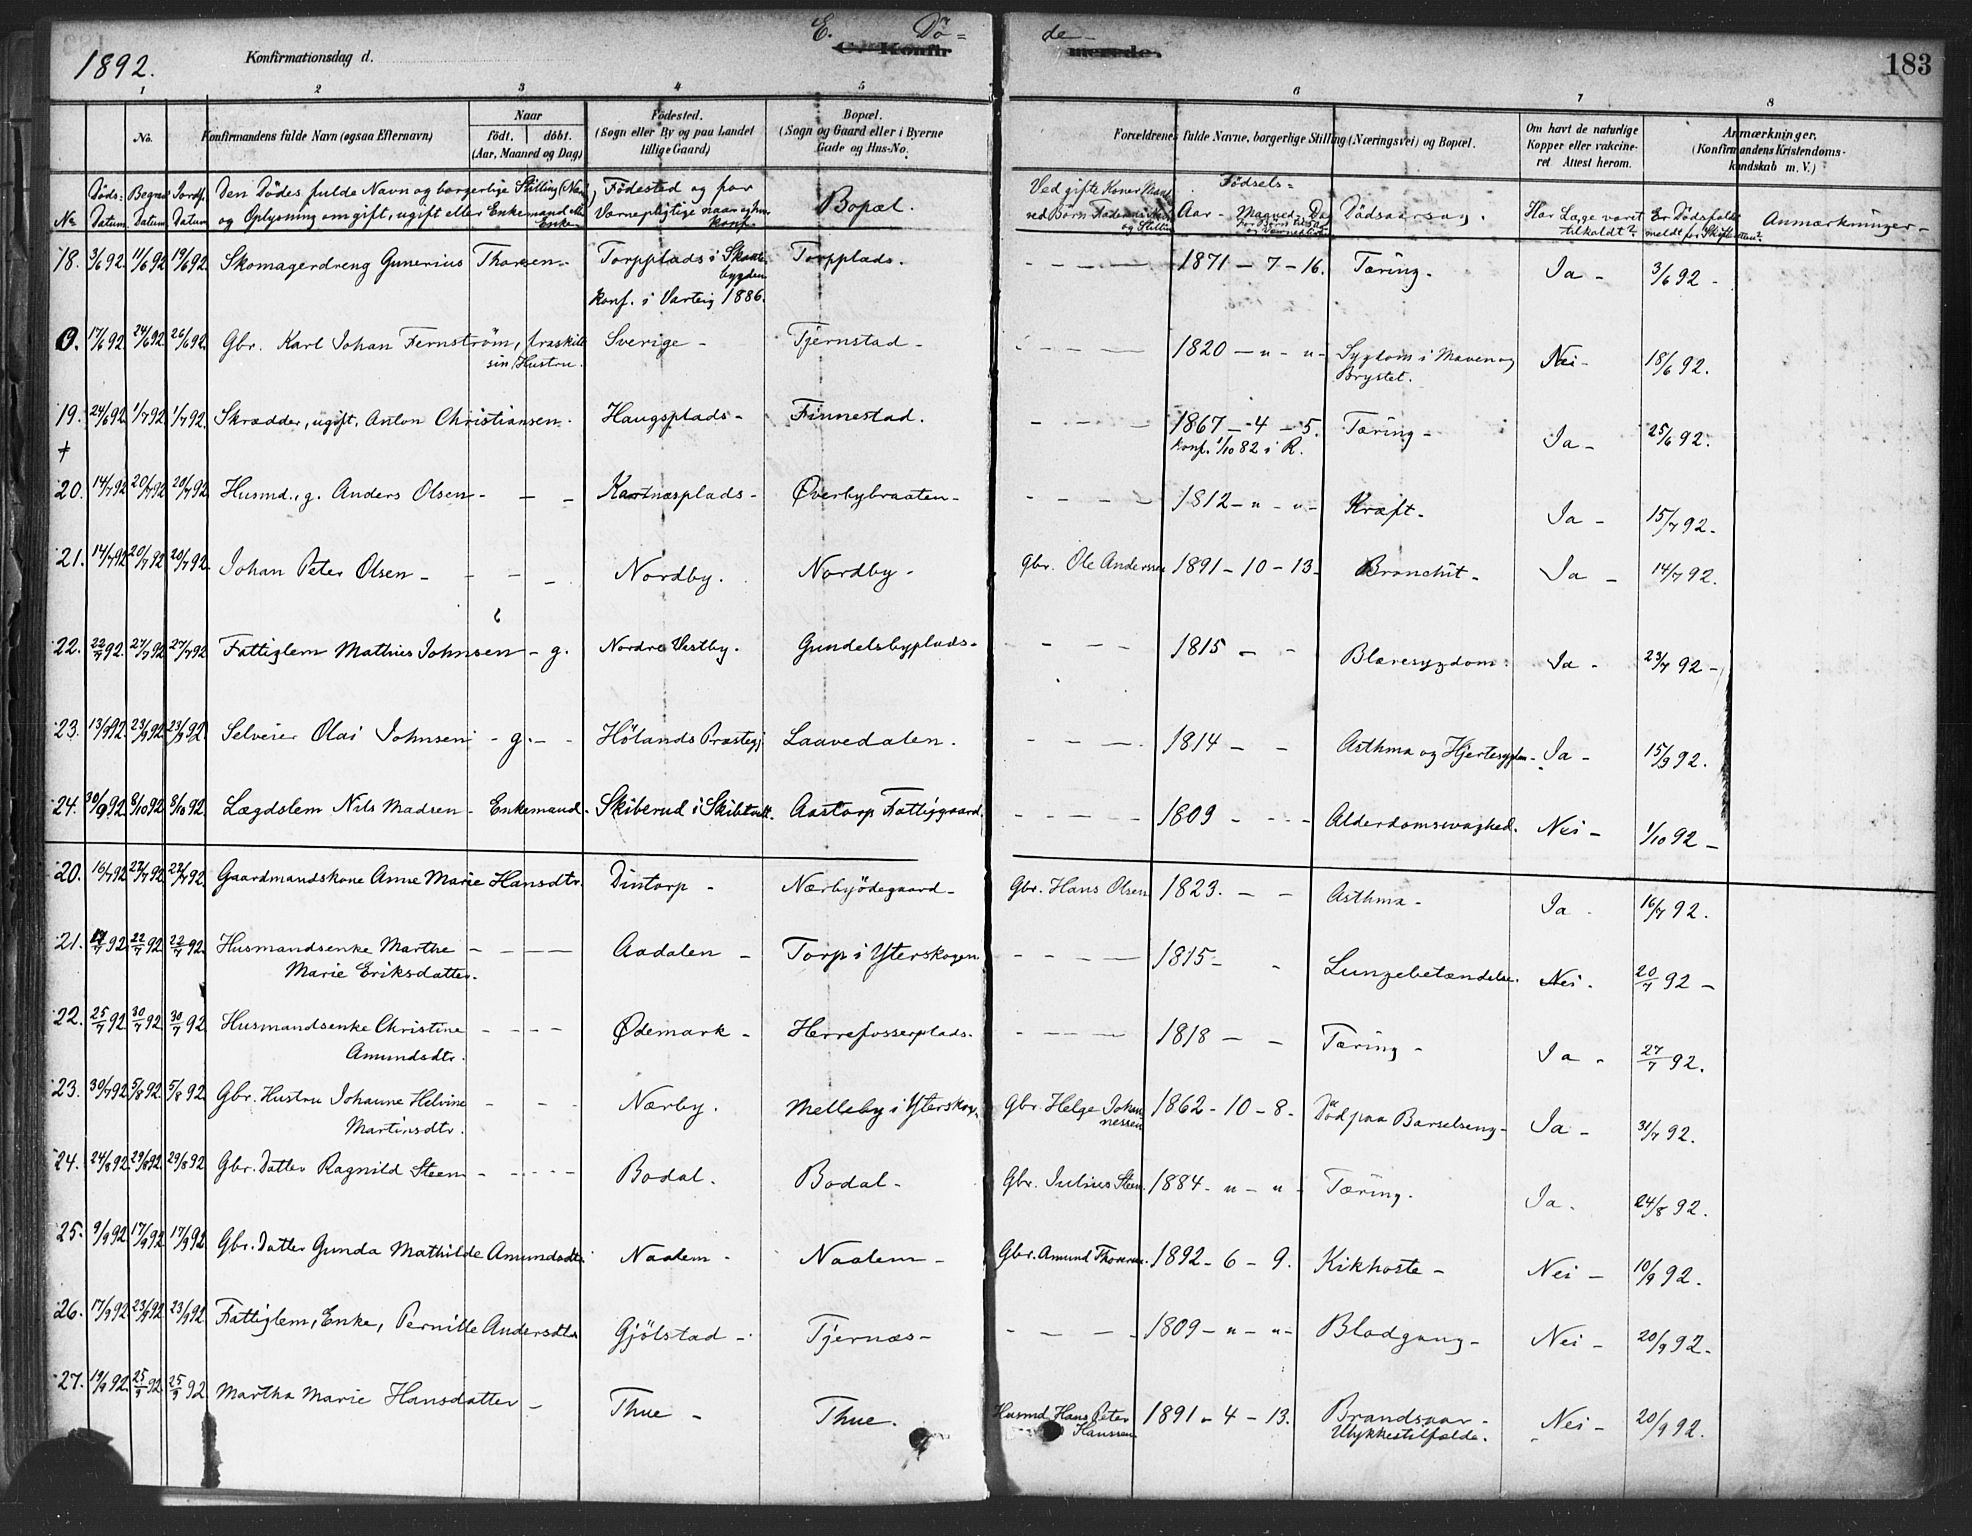 1892.
Konfirmationsdag d.
E. Dö= de-
C. Konfir merede.
183
1 2 3 4 5 6 7 8
No. Konfirmandens fulde Navn (ogsaa Efternavn) Naar født. døbt. (Aar, Maaned og Dag) Fødested. (Sogn eller By og paa Landet tillige Gaard) Bopæl. (Sogn og Gaard eller i Byerne Gade og Hus-No. Forældrenes fulde Navne, borgerlige Stilling (Næringsvei) og Bopæl. Om havt de naturlige Kopper eller vakcineret Attest herom. Anmærkninger. (Konfirmandens Kristendomskundskab m. V.)
No Döds-Datum Begr. Datum Jordf. Datum Den Dödes fulde Navn og borgerlige Stilling og Oplysning om gift, ugift eller Enkemand eller Enke Födested og for Værnepligtige naar og hvor konf. Bopæl. Ved gifte Koner Mands ved Börn Faderens Navn og Stilling Födsels= Aar - Maaned - Dag Dödsaarsag. Har Læge været tilkaldt? Er Dödsfaldet meldt for Skifteretten? Anmærkninger-
18. 3/6 92 11/6 92 19/6 92 Skomagerdreng Gunerius Thorsen- Torpplads i Skaubygden konf. i Varteig 1886. Torpplads. 1871 - 7 - 16. Tæring. Ja - 3/6 92 -
0. 17/6 92 24/6 92 26/6 92. Gbr. Karl Johan Fernström, fraskilt sin Hustru. Sverige - Tjernstad - 1820 - " - " - Sygdom i Maven og Brystet. Nei - 18/6 92.
19. 24/6 92 1/7 92 1/7 92. Skrædder, ugift, Anton Christiansen. Haugsplads - Finnestad. 1867 - 4 - 5. konf. 1/10 82 i R. Tæring - Ja - 25/6 92.
+
20. 14/7 92 20/7 92 20/7 92 Husmd., g. Anders Olsen - - - Kartnæsplads - Øverbybraaten - 1812 - " - " - Kræft - Ja - 15/7 92 -
21. 14/7 92 20/7 92 20/7 92. Johan Peter Olsen - - - - Nordby. Nordby - gbr. Ole Andersen 1891 - 10 - 13. Bronchit - Ja - 14/7 92.
22. 22/7 92. 27/7 92 27/7 92 Fattiglem Mathies Johnsen - g. Nordre Vestby. Gundelsbyplads - 1815 - - Blæresygdom. Ja - 23/7 92 -
23. 13/9 92 23/9 92 23/9 92. Selveier Olai Johnsen - g. - - Hölands Præstegj. Laavedalen. 1814 - - Asthma og Hjertesygdom - Ja - 15/9 92.
24. 30/9 92 8/10 92 8/10 92. Lægdslem Nils Madsen - Enkemand. Skiberud i Skibtvedt. Aastorp Fattiggaard. 1809 - - - Alderdomssvaghed. Nei - 1/10 92 -
20. 16/7 92 22/7 92 22/7 92. Gaardmandskone Anne Marie Hansdtr. Dintorp - Nærbyödegaard - Gbr. Hans Olsen 1823. - - Asthma - Ja - 16/7 92.
21. 17/7 92 22/7 92 22/7 92. Husmandsenke Marthe Marie Eriksdatter. Aadalen - Torp i Ytterskogen 1815 - - Lungebetændelse. Nei. 20/7 92 -
22. 25/7 92 30/7 92 30/7 92 Husmandsenke Christine Amundsdtr. Ødemark - Herrefosserplads. 1818 - - Tæring - Ja - 27/7 92.
23. 30/7 92 5/8 92. 5/8 92 Gbr. Hustru Johanne Helvine Martinsdtr. Nærby. Melleby i Ytterskog. Gbr. Helge Johannessen 1862 - 10 - 8. Död paa Barselseng - Ja - 31/7 92.
24. 24/8 92. 29/8 92. 29/8 92 Gbr. Datter Ragnild Steen - Bodal. Bodal - Gbr. Julius Steen. 1884 - " - " - Tæring. Ja. 24/8 92.
25. 9/9 92 17/9 92 17/9 92 Gbr. Datter Gunda Mathilde Amundsdtr. Naalem - Naalem - Gbr. Amund Thoresen. 1892 - 6 - 9. Kikhoste - Nei - 10/9 92.
26. 17/9 92 23/9 92 23/9 92 Fattiglem, Enke, Pernille Andersdtr Gjölstad - Tjernæs - 1809 - " - " - Blodgang - Nei - 20/9 92.
27. 19/9 92. 25/9 92 25/9 92 Martha Marie Hansdatter - Thue - Thue. Husmd Hans Peter Hanssen 1891 - 4 - 13. Brandsaar - Ulykkestilfælde. Nei - 20/9 92.